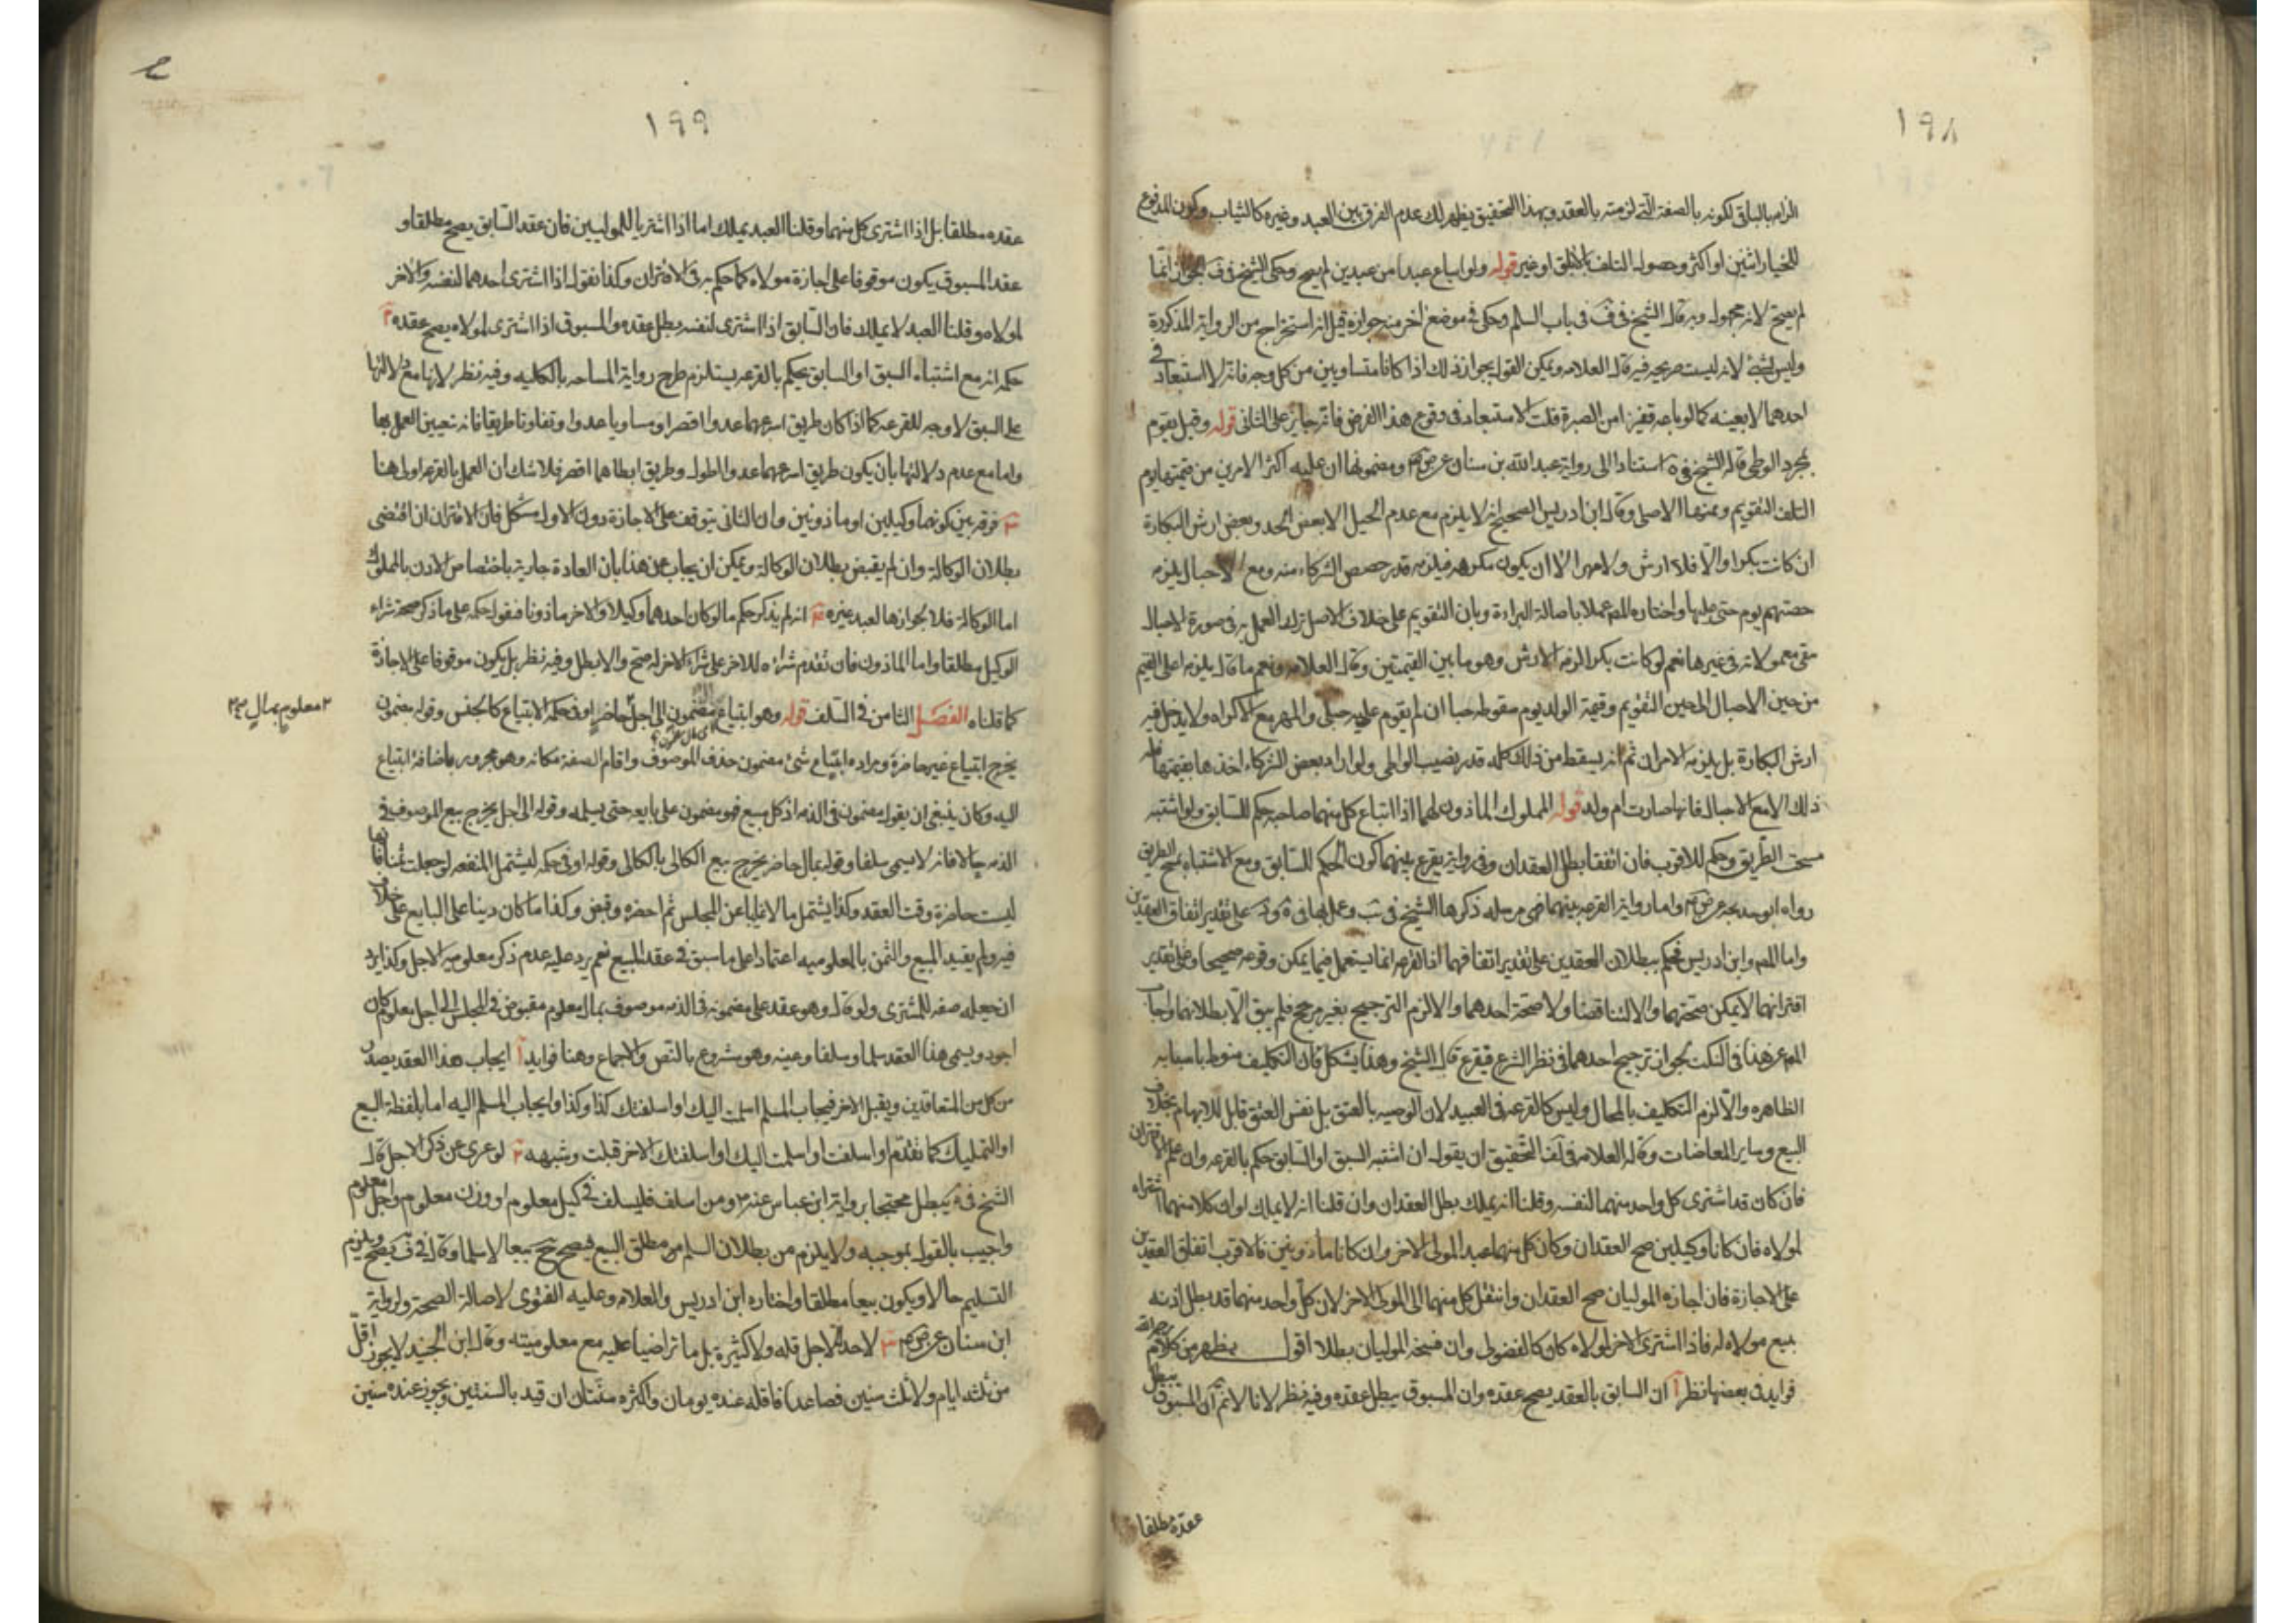 ١٩٨
الزام بالباقى لكونه بالصفة التى لزمته بالعقد وبهذا التحقيق يظهر لك عدم الفرق بين العبد وغيره كالثياب وكون المدفوع
للخيار اثنين او اكثر وحصول التلف بالاباق او غيره قوله ولو ابتاع عبدا من عبدين لم يصح وحكى الشيخ فى ف الجواز انما
لم يصح لانه مجهول وبه قال الشيخ فى ف فى باب السلم وحكى فى موضع اخر منه جوازه قيل انه استخراج من الرواية المذكورة
وليس بشئ لانه ليست صريحه فيه قال العلامه ويمكن القول بجواز ذلك اذا كانا متساويين من كل وجه فانه لا استبعاد فى
احدهما لا بعينه كما لو باعه قفيزا من الصبرة قلت لا استبعاد فى وقوع هذا الفرض فانه جايز على الثانى قوله وقيل يقوم
بمجرد الوطى قاله الشيخ فى ية استنادا الى رواية عبد الله بن سنان عن ص ع ومضمونها ان عليه اكثر الامرين من قيمتها يوم
التقويم وثمنها الاصلى وقال ابن ادريس الصحيح انه لا يلزم مع عدم الحبل الا بعض الحد وبعض ارش البكارة
ان كانت بكرا والا فلا ارش ولا مهر الا ان يكون مكرهه فيلزمه قدر حصص الشركاء منه ومع الاحبال يلزمه
حصتهم يوم جنى عليها واختاره المصـ عملا باصالة البراءة وبان التقويم على خلاف الاصل ترك العمل به فى صورة الاحبال
بقى معمولا به فى غيرها نعم لو كانت بكرا لزمه الارش وهو ما بين القيمتين وقال العلامه ونعم ما قال يلزمه اعلى القيم
من حين الاحبال الى حين التقويم وقيمة الولد يوم سقوطه حيا ان لم يقوم عليه حبلى والمهر مع الاكراه ولا يدخل فيه
ارش البكارة بل يلزمه الامران ثم انه يسقط من ذلك كله قدر نصيب الواطى ولو اراد بعض الشركاء اخذها بقيمتها فله
ذلك الا مع الاحبال فانها صارت ام ولد قوله المملوك الماذون لهما اذا ابتاع كل منهما صاحبه حكم للسابق ولو اشتبه
مسحت الطريق وحكم للاقرب فان اتفقا بطل العقدان وفى رواية يقرع بينهما كون الحكم للسابق ومع الاشتباه بمسح الطريق
رواه ابو خديجه عن ص ع واما رواية القرعه بينهما فهى مرسله ذكرها الشيخ فى يب وعمل بها فى ية على تقدير اتفاق العقدين
واما المصـ وابن ادريس فحكم ببطلان العقدين على تقدير اتفاقهما اذ القرعه انما يستعمل فيما يمكن وقوعه صحيحا وعلى تقدير
اقترانهما لا يمكن صحتهما والا لتناقضا ولا صحة احدهما والا لزم الترجيح بغير مرجح فلم يبق الا بطلانهما واجاب
المصـ عن هذا فى النكت بجواز ترجيح احدهما فى نظر الشرع فيقرع قال الشيخ وهذا يشكل فان التكليف منوط باسبابه
الظاهره والا لزم التكليف بالمحال وليس كالقرعه فى العبيد لان الوصيه بالعتق بل نفس العتق قابل للابهام بخلاف
البيع وساير المعاضات وقال العلامه فى لف التحقيق ان يقول ان اشتبه السبق او السابق حكم بالقرعه وان علم الاقتران
فان كان قد اشترى كل واحد منهما لنفسه وقلنا انه يملك بطل العقدان وان قلنا انه لا يملك او ان كلا منهما اشتراه
لمولاه فان كانا وكيلين صح العقدان وكان كل منهما عبدا لمولى الاخر وان كانا ماذونين فالاقرب اتفاق العقدين
على الاجازة فان اجازه الموليان صح العقدان وانتقل كل منهما الى المولى الاخر لان كل واحد منهما قد بطل اذنه
ببيع مولاه له فاذا اشترى الاخر لمولاه كان كالفضولى وان فسخه الموليان بطلا اقول يظهر من كلامه رحمه الله
فوايد فى بعضها نظر آ ان السابق بالعقد يصح عقده وان المسبوق يبطل عقده وفيه نظر لانا لا نم ان المسبوق يبطل
عقده مطلقا
١٩٩
عقده مطلقا بل اذا اشترى كل منهما وقلنا العبد يملك اما اذا اشتريا للموليين فان عقد السابق يصح مطلقا و
عقد المسبوق يكون موقوفا على اجازة مولاه كما حكم به فى الاقتران وكذا نقول اذا اشترى احدهما لنفسه والاخر
لمولاه وقلنا العبد لا يملك فان السابق اذا اشترى لنفسه بطل عقده والمسبوق اذا اشترى لمولاه يصح عقده ٢
حكمه انه مع اشتباه السبق او السابق يحكم بالقرعه يستلزم طرح رواية المساحه بالكليه وفيه نظر لانها مع دلالتها
على السبق لا وجه للقرعه كما اذا كان طريق اسرعهما عدوا اقصر او مساويا عدوا وتفاوتا طريقا فانه تعين العمل بها
واما مع عدم دلالتها بان يكون طريق اسرعهما عدوا اطول وطريق ابطاهما اقصر فلا شك ان العمل بالقرعه اولى هنا
٣ فرقه بين كونهما وكيلين او ماذونين وان الثانى يتوقف على الاجازة دون الاول مشكل فان الاقتران ان اقتضى
بطلان الوكالة وان لم يقتض بطلان الوكالة ويمكن ان يجاب عن هذا بان العادة جارية باختصاص الاذن بالمملوك
اما الوكالة فلا لجوازها لعبد غيره ٤ انه لم يذكر حكم ما لو كان احدهما وكيلا والاخر ماذونا فنقول حكمه على ما ذكر صحة شراء
الوكيل مطلقا واما الماذون فان تقدم شراءه للاخر على شراء الاخر له صح والا بطل وفيه نظر بل يكون موقوفا على الاجازة
كما قلناه الفصل الثامن فى السلف قوله وهو ابتياع مضمون الى اجل بمال حاضر او فى حكمه الابتياع كالجنس وقوله مضمون
يخرج ابتياع غير حاضرة ومراده ابتياع شئ مضمون حذف الموصوف واقام الصفة مكانه وهو مجرور باضافة ابتياع
اليه وكان ينبغى ان يقول مضمون فى الذمه اذ كل مبيع فهو مضمون على بايعه حتى يسلمه وقوله الى اجل يخرج بيع الموصوف فى
الذمه حالا فانه لا يسمى سلفا وقوله بمال حاضر يخرج بيع الكالى بالكالى وقوله او فى حكمه ليشتمل المنفعه لو جعلت ثمنا فانها
ليست حاضرة وقت العقد وكذا يشتمل مالا غايبا عن المجلس ثم احضره وقبض وكذا ما كان دينا على البايع على خلاف
فيه ولم يقيد المبيع والثمن بالمعلوميه اعتمادا على ما سبق فى عقد البيع نعم يرد عليه عدم ذكر معلومية الاجل وكذا يرد
ان جعله صفه للمشترى ولو قال وهو عقد على مضمونه فى الذمه موصوف بمال معلوم مقبوض فى المجلس الى اجل معلوم كان
اجود ويسمى هذا العقد سلما وسلفا وعينه وهو مشروع بالنص والاجماع وهنا فوايد آ ايجاب هذا العقد يصدر
من كل من المتعاقدين ويقبل الاخر فيجاب المسلم اسلمت اليك او اسلفتك كذا وكذا وايجاب المسلم اليه اما بلفظة البيع
او التمليك كما تقدم او اسلفت او اسلمت اليك او اسلفتك الاخر قبلت وشبهه ٢ لو عرى عن ذكر الاجل قال
الشيخ فى ف يبطل محتجا برواية ابن عباس عنه ص ومن اسلف فليسلف فى كيل معلوم او وزن معلوم واجل معلوم
واجيب بالقول بموجبه ولا يلزم من بطلان السلم من مطلق البيع فيصح ح بيعا لا سلما وقال فى ف يصح ويلزم
التسليم حالا ويكون بيعا مطلقا واختاره ابن ادريس والعلامه وعليه الفتوى لاصالة الصحة ولرواية
ابن سنان عن ص ع ٣ لا حد لاجل قله ولا كثرة بل ما تراضيا عليه مع معلوميته وقال ابن الجنيد لا يجوز اقل
من ثلثه ايام ولا ثلث سنين فصاعدا فاقله عنده يومان واكثره سنتان ان قيد بالسنتين ويجوز عنده سنين
معلوم بمال